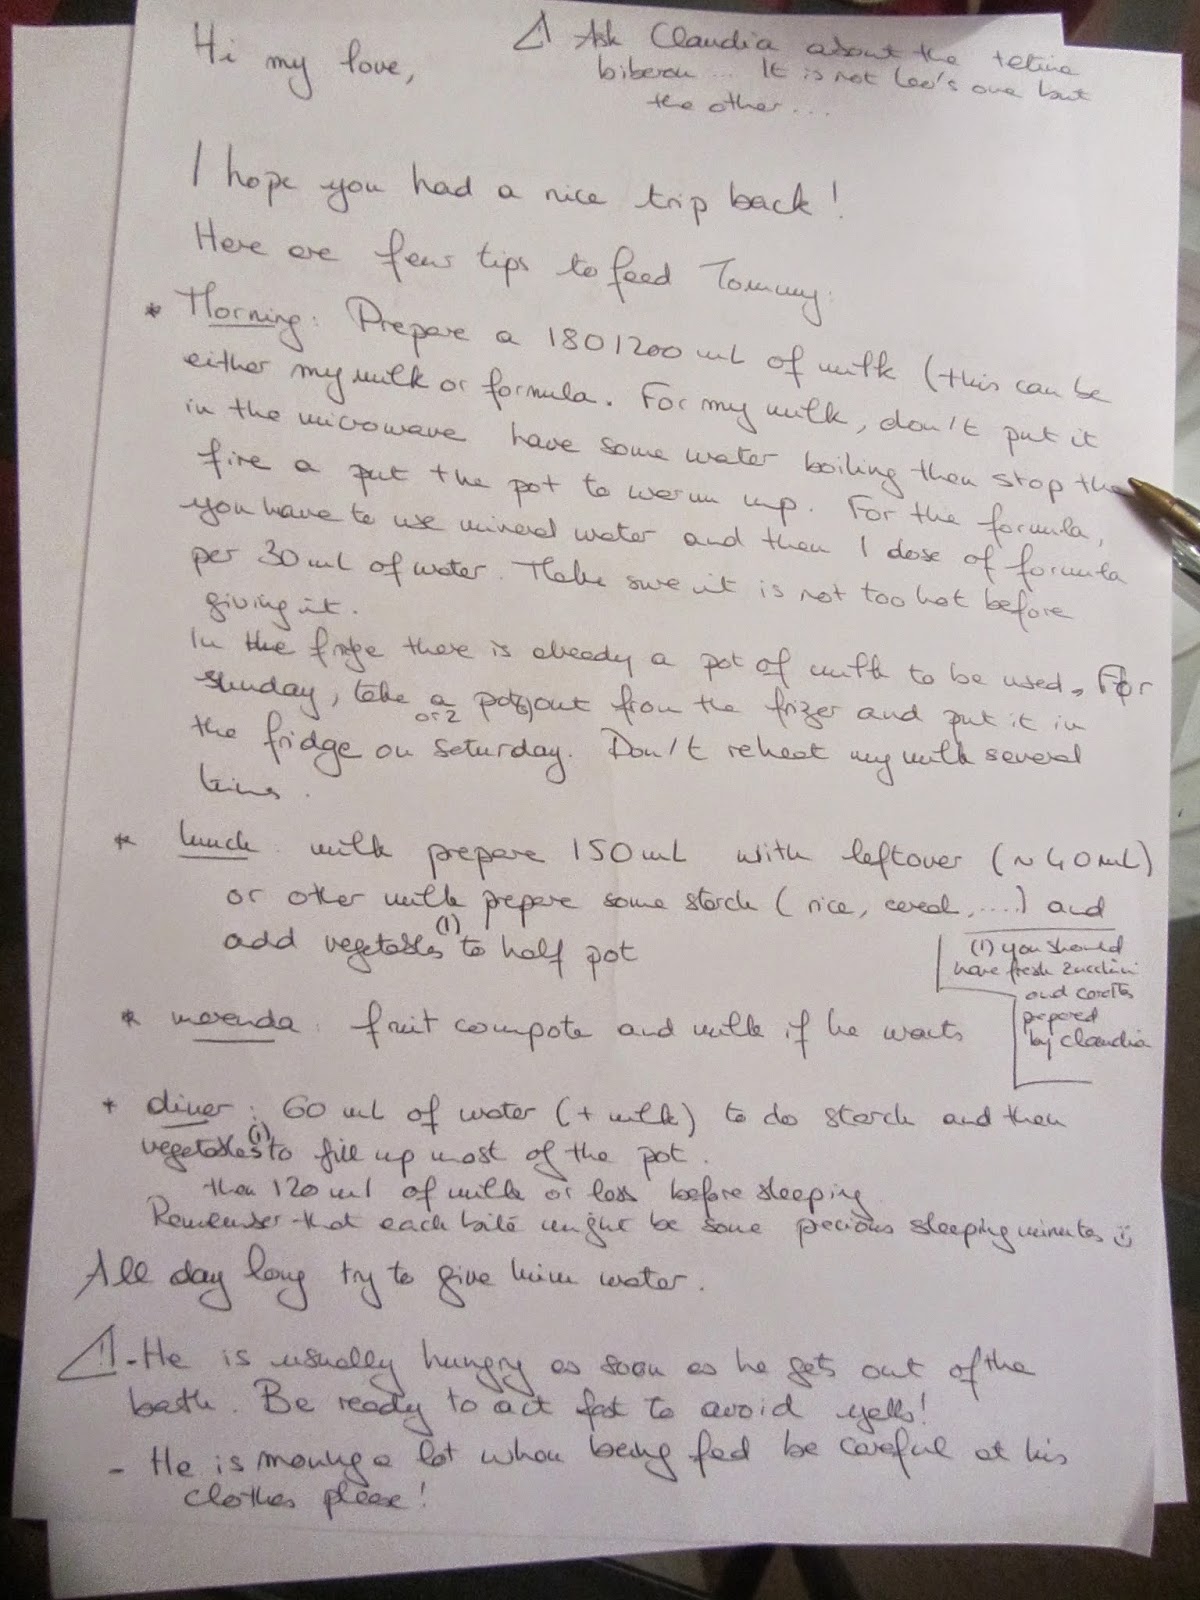 Hi my love,
⚠ Ask Claudia about the tetina
biberon ... It is not Leo's one but
the other ...
I hope you had a nice trip back!
Here are few tips to feed Tommy:
* Morning: Prepare a 180/200 mL of milk (this can be
either my milk or formula. For my milk, don't put it
in the microwave have some water boiling then stop the
fire a put the pot to warm up. For the formula,
you have to use mineral water and then 1 dose of formula
per 30 mL of water. Make sure it is not too hot before
giving it.
In the fridge there is already a pot of milk to be used. For
sunday, take a pot(s) out from the frizer and put it in
or 2
the fridge on saturday. Don't reheat my milk several
times.
* lunch: milk prepare 150 mL with leftover (~40mL)
or other milk prepare some starch (rice, cereal, ....) and
add vegetables (1) to half pot
(1) you should
have fresh zucchini
and carotts
prepared
by Claudia
* merenda: fruit compote and milk if he wants
* diner: 60 mL of water (+ milk) to do starch and then
vegetables (1) to fill up most of the pot.
then 120 ml of milk or less before sleeping
Remember that each bite might be some precious sleeping minutes ☺
All day long try to give him water.
⚠ - He is usually hungry as soon as he gets out of the
bath. Be ready to act fast to avoid yells!
- He is moving a lot when being fed be careful at his
clothes please!